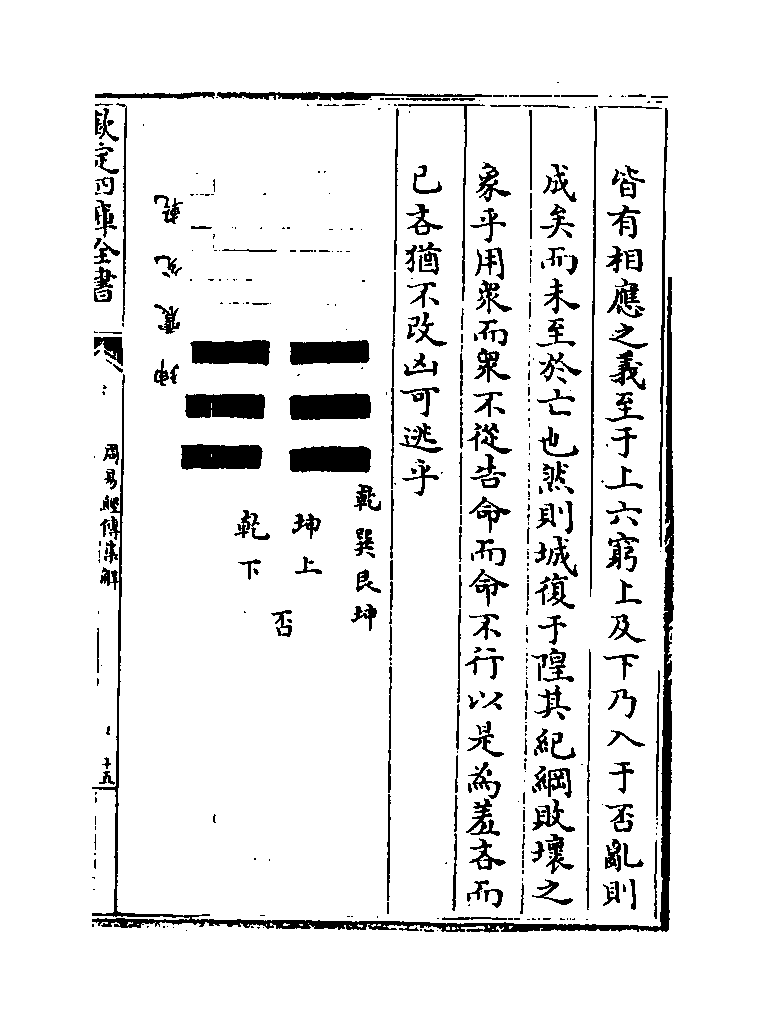 皆有相應之義至于上六窮上及下乃入于否亂則
成矣而未至於亡也然則城復于隍其紀綱敗壞之
象乎用衆而衆不從告命而命不行以是為羞吝而
已吝猶不改凶可逃乎
乾巽艮坤
坤上
乾下
否
乾兌震坤
欽定四庫全書
周易經傳集解
十五